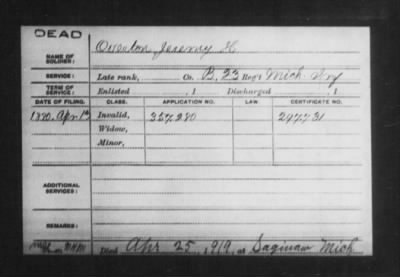 DEAD
NAME OF SOLDIER: Overton, Jeremy H.
SERVICE: Late rank, Co. B, 23 Reg't Mich. Inf
TERM OF SERVICE: Enlisted , 1 Discharged , 1
DATE OF FILING. CLASS. APPLICATION NO. LAW. CERTIFICATE NO.
1880, Apr. 13 Invalid, 357,280 297731
Widow,
Minor,
ADDITIONAL SERVICES:
REMARKS:
Died Apr 25, 1919, at Saginaw Mich